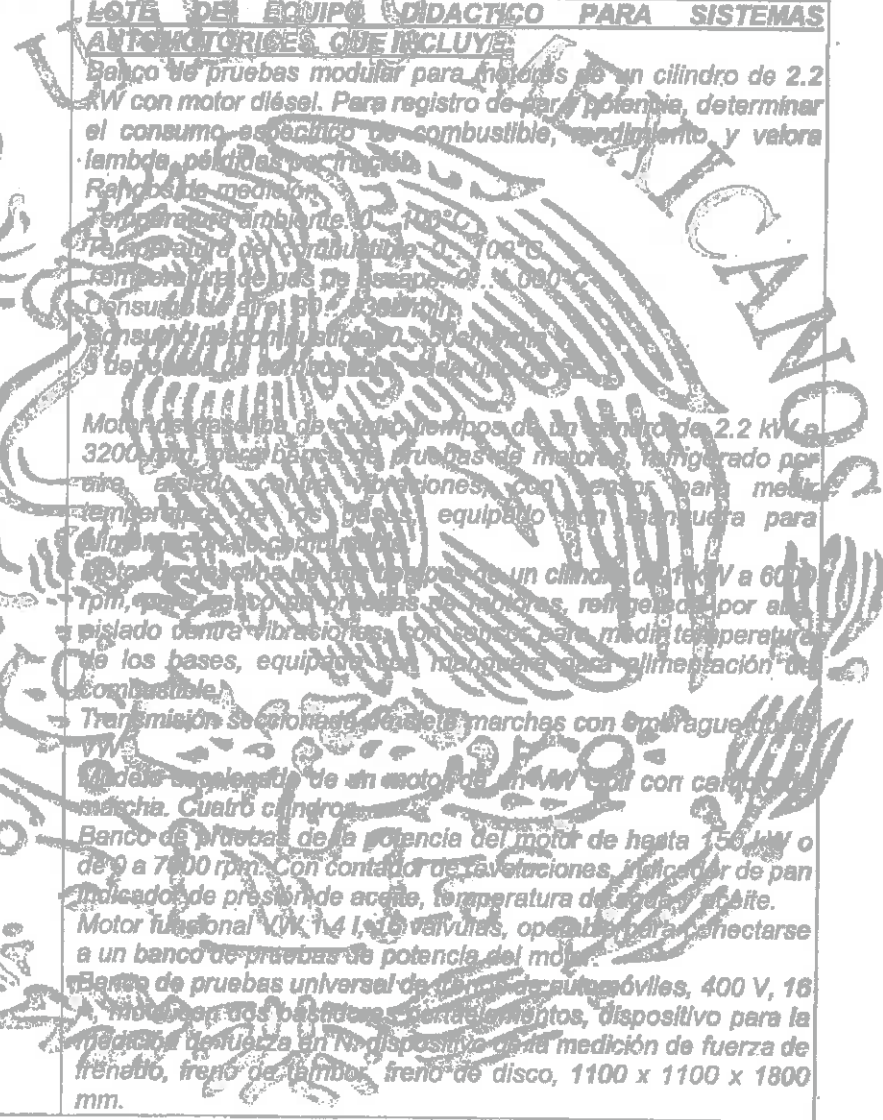 LOTE DEL EQUIPO DIDACTICO PARA SISTEMAS
AUTOMOTORICES, QUE INCLUYE:
Banco de pruebas modular para motores de un cilindro de 2.2
kW con motor diésel. Para registro de par y potencia, determinar
el consumo específico de combustible, rendimiento y valora
lambda, pérdidas por fricción.
Rangos de medición.
Temperatura ambiente 0 100°C
Temperatura del combustible 0 100°C
Temperatura de gas de escape
Consumo de aire
Consumo de combustible
3 depósitos de combustible
Motor de gasolina de cuatro tiempos de un cilindro de 2.2 kW a
3200 rpm, para banco de pruebas de motores, refrigerado por
aire, aislado contra vibraciones, con sensor para medir
temperatura de los gases, equipado con manguera para
alimentación de combustible.
Motor de gasolina de dos tiempos de un cilindro de 1 kW a 6000
rpm, para banco de pruebas de motores, refrigerado por aire,
aislado contra vibraciones, con sensor para medir temperatura
de los bases, equipado con manguera para alimentación de
combustible.
Transmisión seccionada de siete marchas con embrague
VW.
Modelo seccionado de un motor de un VW Golf con
marcha. Cuatro cilindros.
Banco de pruebas de la potencia del motor de hasta 150 kW o
de 0 a 7000 rpm. Con contador de revoluciones, indicador de pan
indicador de presión de aceite, temperatura de agua y aceite.
Motor funcional VW 1.4 l, 16 válvulas, operable para conectarse
a un banco de pruebas de potencia del motor.
Banco de pruebas universal de frenos de automóviles, 400 V, 16
A, dos bastidores dispositivo para la
medición de fuerza en N, dispositivo de la medición de fuerza de
frenado, freno de tambor, freno de disco, 1100 x 1100 x 1800
mm.
UNIDOS MEXICANOS